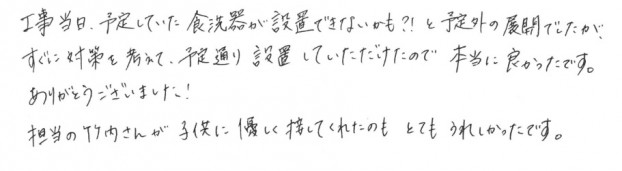 工事当日、予定していた食洗器が設置できないかも?!と予定外の展開でしたが、
すぐに対策を考えて、予定通り設置していただけたので本当に良かったです。
ありがとうございました!
担当の竹内さんが子供に優しく接してくれたのもとてもうれしかったです。